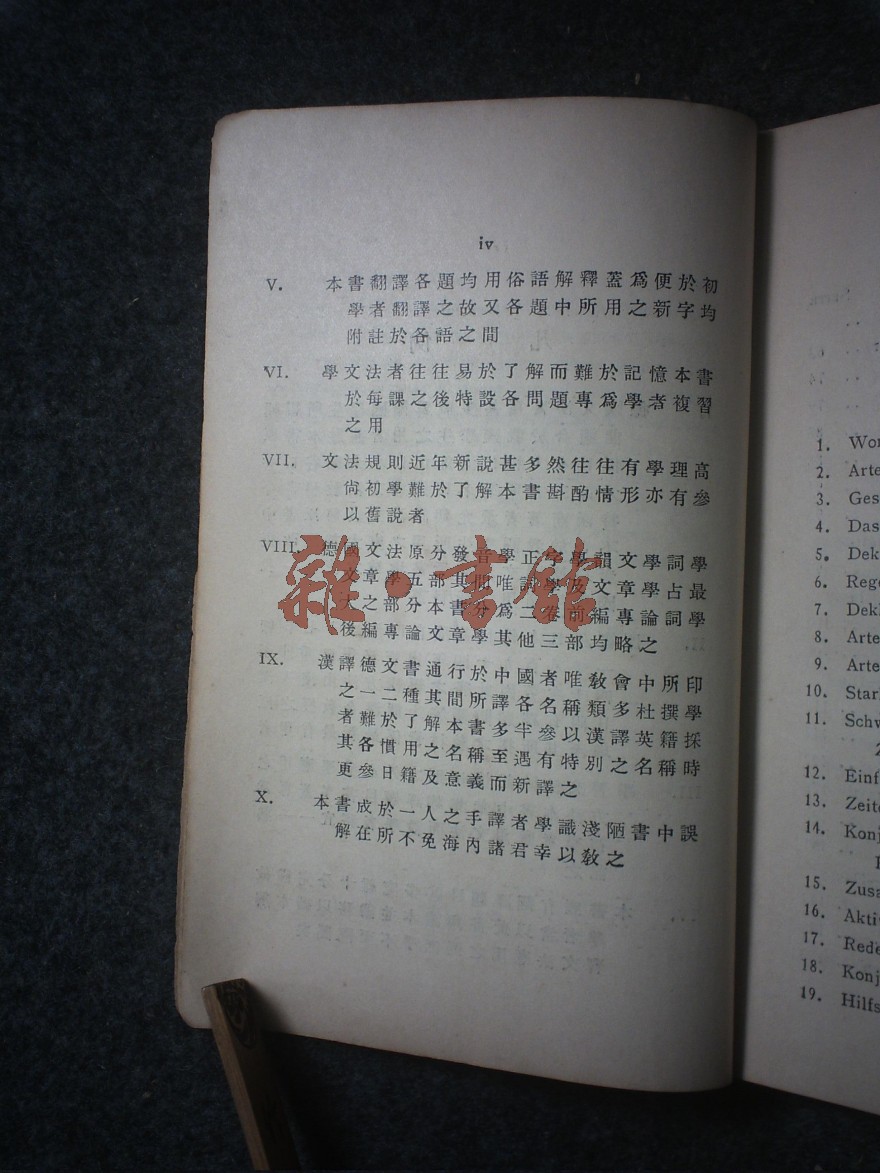 iv
V. 本書翻譯各題均用俗語解釋蓋爲便於初
學者翻譯之故又各題中所用之新字均
附註於各語之間
VI. 學文法者往往易於了解而難於記憶本書
於每課之後特設各問題專爲學者複習
之用
VII. 文法規則近年新說甚多然往往有學理高
尙初學難於了解本書斟酌情形亦有參
以舊說者
VIII. 德國文法原分發音學正字學韻文學詞學
文章學五部其間唯詞學及文章學占最
大之部分本書分爲二卷前編專論詞學
後編專論文章學其他三部均略之
IX. 漢譯德文書通行於中國者唯敎會中所印
之一二種其間所譯各名稱類多杜撰學
者難於了解本書多半參以漢譯英籍採
其各慣用之名稱至遇有特別之名稱時
更參日籍及意義而新譯之
X. 本書成於一人之手譯者學識淺陋書中誤
解在所不免海內諸君幸以敎之
雜·書館
1. Wor
2. Arte
3. Ges
4. Das
5. Dek
6. Rege
7. Dekl
8. Arte
9. Arte
10. Star
11. Schw
12. Einf
13. Zeite
14. Konj
15. Zusa
16. Aktiv
17. Rede
18. Konj
19. Hilfs